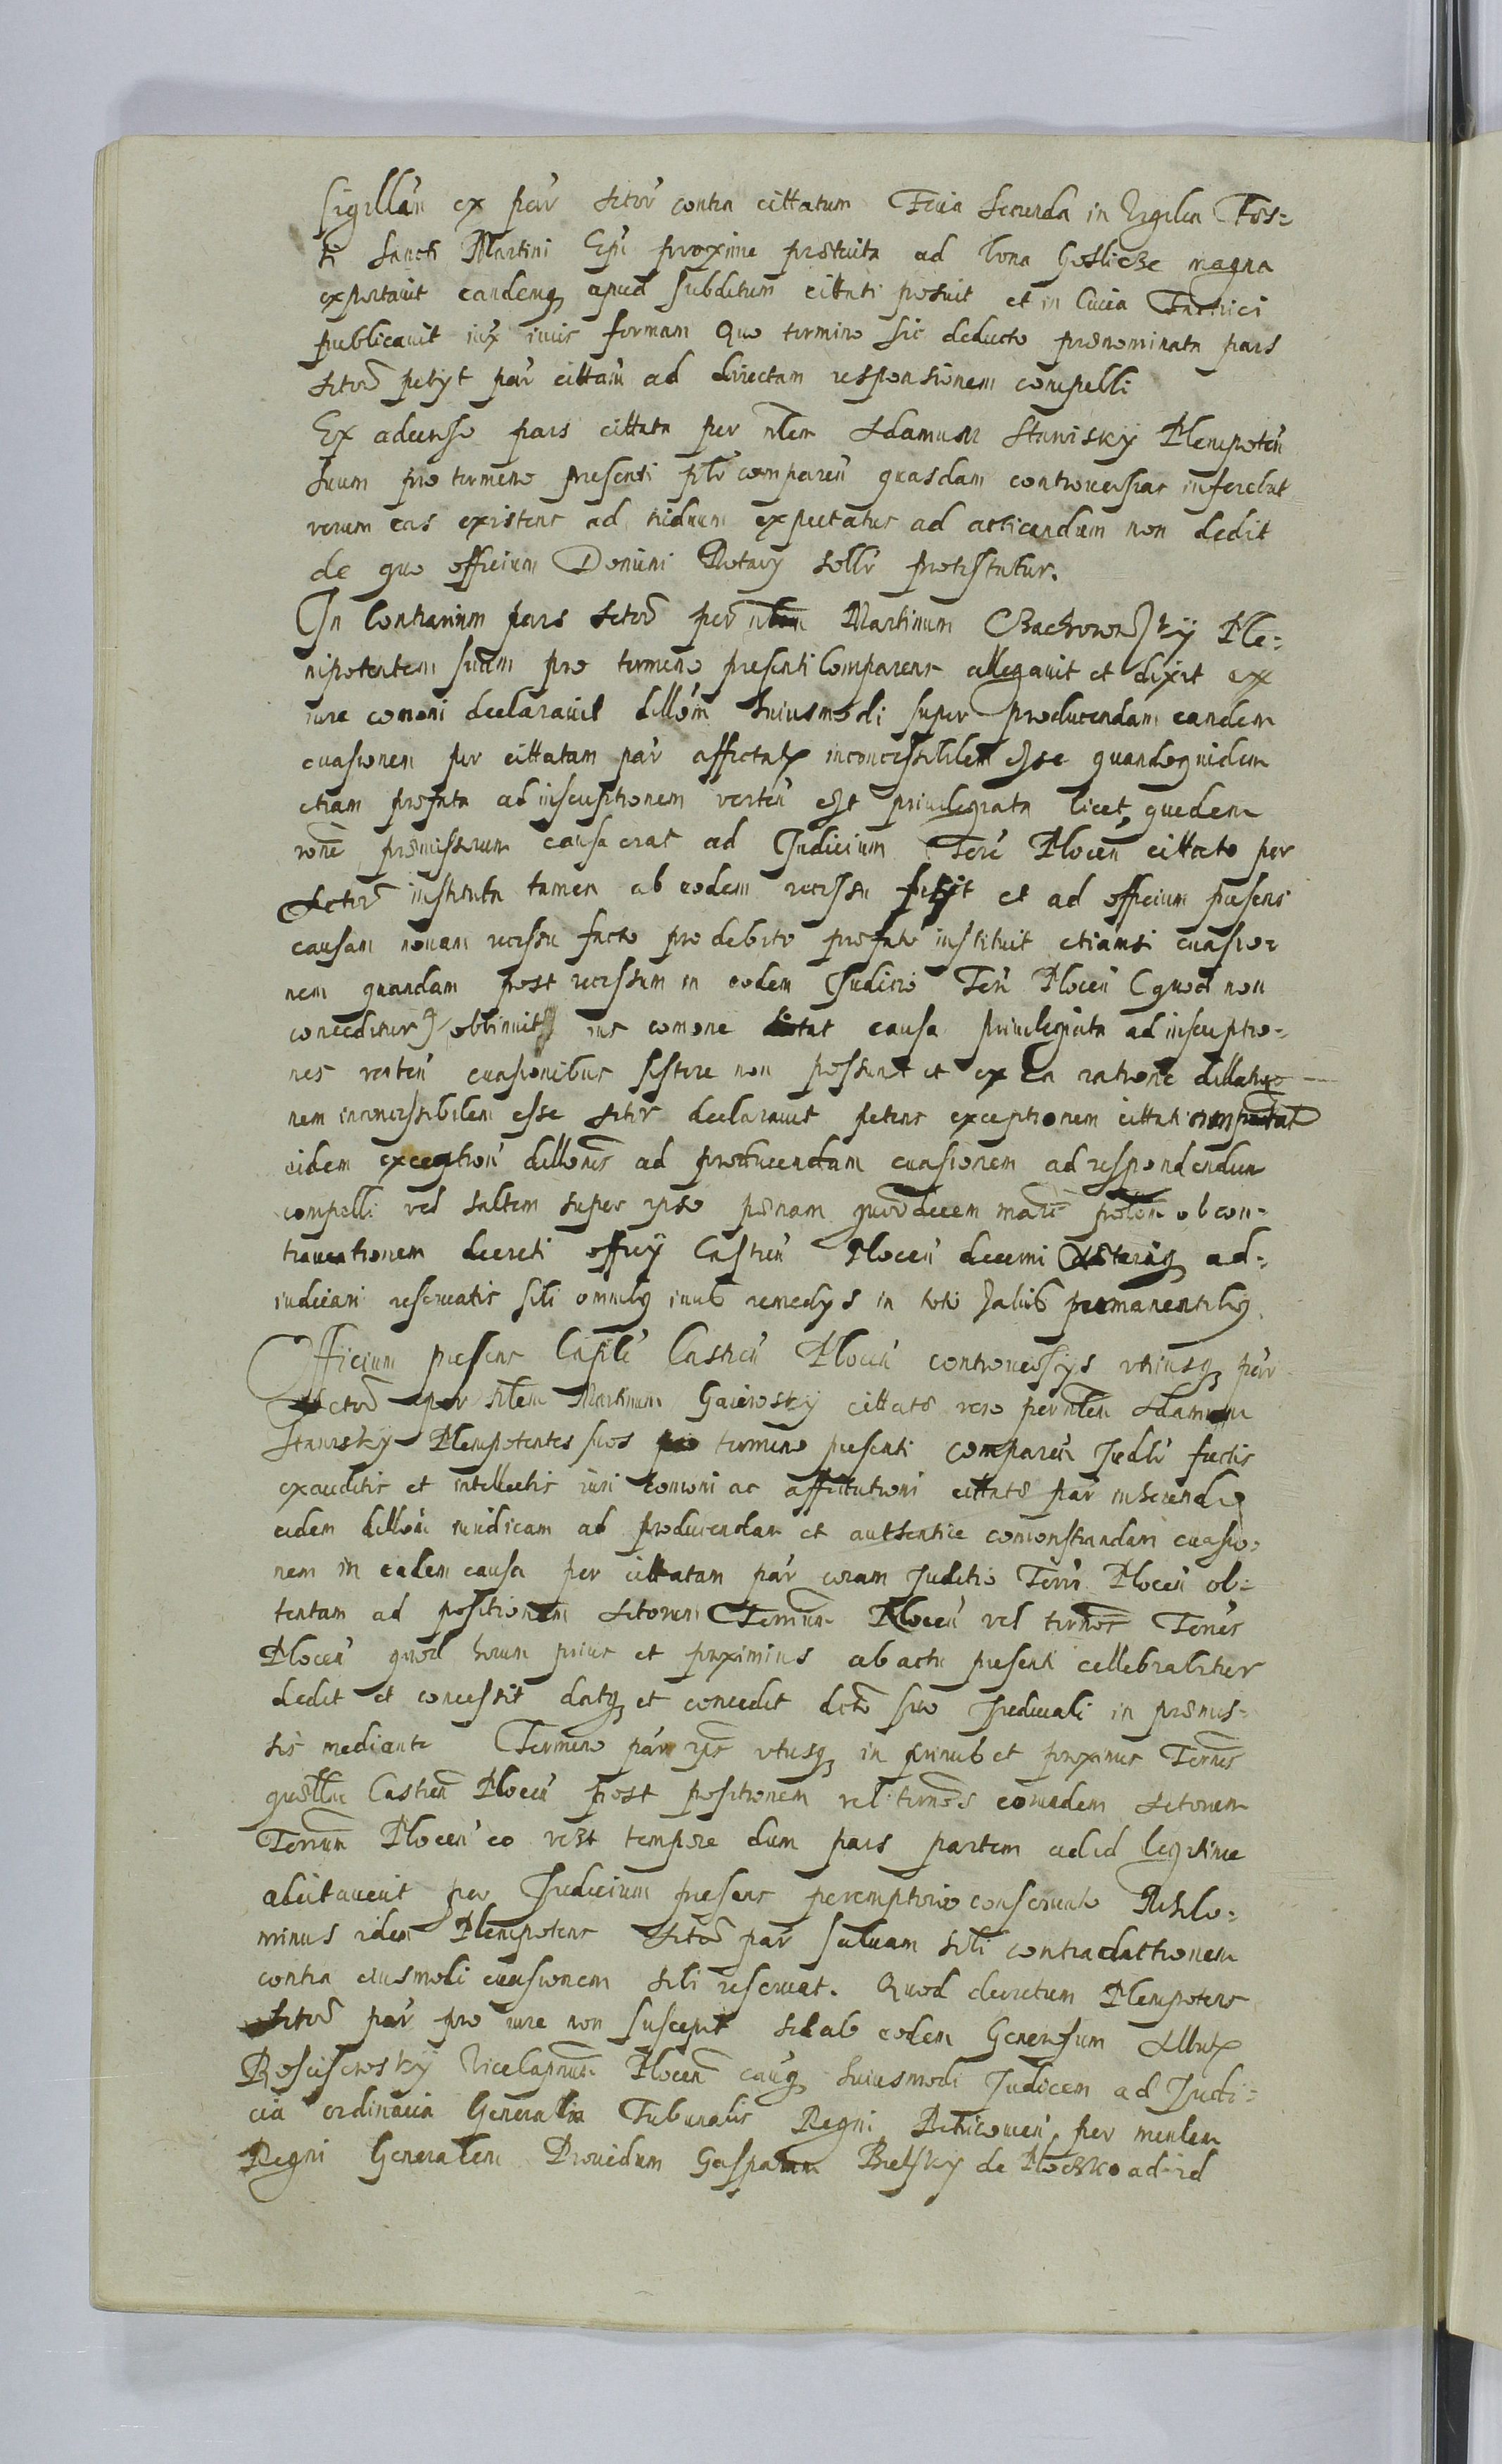 sigillan ex par Actor contra cittatum Feria Secunda in Vigilia Fes-
ti Sancti Martini Epi proxime præterita ad bona Goslicze magna
exportavit eandemq apud subditum cittati posuit et in Curia
publicavit iux iuris formam Quo termino sic deducto prænominata pars
Actor petyt par cittam ad directam responsionem compelli
Ex adverso pars cittata per nlem Adamum Stanisky Plenipoten
suum pro termino presenti comparen quasdam controversias inferebat
verum eas existens ad triduum expectatus ad acticandum non dedit
de quo officium Domini Notary solle protestatur.
In Contrarium pars Actor per nlem Martinum Ple-
nipotentem suum pro termino presenti Comparens allegavit et dixit ex
iure comoni declaravit dillom huiusmodi super producendam eandem
evasionem per cittatam par affectat inconcessibilem esse quandoquidem
etiam præfata ad inscriptionem verten est privilegiata licet quedem
rone præmissorum causa erat ad Judicium Terr Plocen cittato per
Actor instituta tamen ab eodem recessu et ad officium presens
causam novam recessu facto pro debito præfato instituit etiamsi evasio-
nem quandam post recessum in eodem Judicio Terr Plocen (quod non
conceditur) obtinuit ius comone causa privilegiata ad inscriptio-
nes verten evasionibus sistere non possunt et ex ea ratione dillatio
nem inconcessibilem esse Actor declaravit petens exceptionem cittati
eidem exception dillonis ad producendam evasionem ad respondendum
compelli vel saltem super ipso pænam quordecem marc polon ob con-
traventionem decreti officy Castren Plocen decerni ad-
iudicari reservatis sibi omnibq iurib remedys in toto salvis permanentibq
Officium presens Capile Castren Plocen controversys utriusq par
Actor per nlem Martinum cittatæ vero per nlem Adamum
Stanisky Plenipotentes suos pro termino presenti comparen Judle factis
exauditis et intellectis iuri comoni ac affectationi cittatæ par inherendo
eidem dillom iuridicam ad producendam et authentice comonstrandam evasio-
nem in eadem causa per cittatam par coram Juditio Terr Plocen ob-
tentam ad positionem Actorum Terrum Plocen vel termos Terres
Plocen quod horum prius et proximius ab actu presenti cellebrabitur
dedit et concessit datq et concedit decto suo Judicali in præmis-
sis mediante Termino par ips utrisq in primis et proximis Termis
quællu Castren Plocen post positionem vel termos eorundem Actorum
Terrum Plocen eo vest tempore dum pars partem ad id legitime
adcitaverit per Judicium presens peremptorio conservato Nihilo-
minus idem Plenipotens Actor par salvam sibi contradictionem
contra eiusmodi evasionem sibi reservat. Quod decretum Plenipotens
Actor par pro iure non suscepit sed ab eodem Generosum
Rosciszewsky Vicecapneum Plocen eaug huiusmodi Judicem ad Judi-
cia ordinaria Generalia Tribunalis Regni Petricoven per menlem
Regni Generalem Providum Gasparum Bielsky de Ploczko ad id